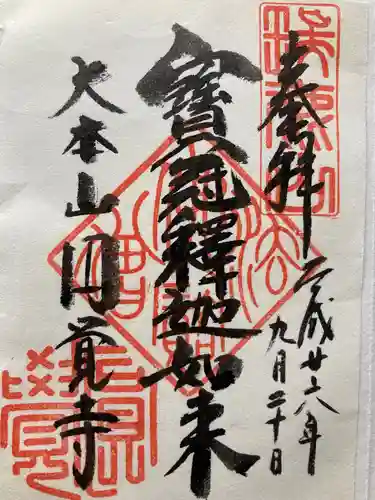 奉拝
平成廿六年
九月二十日
寳冠釋迦如来
大本山円覚寺